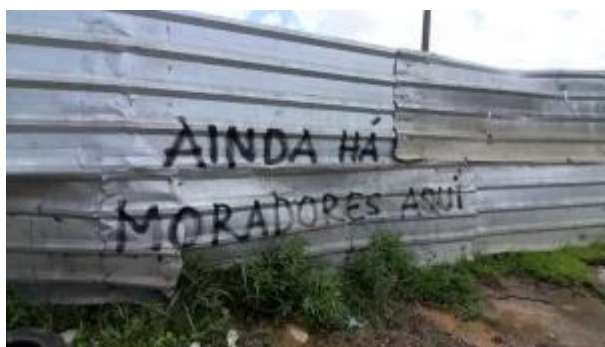 AINDA HÁ
MORADORES AQUÍ